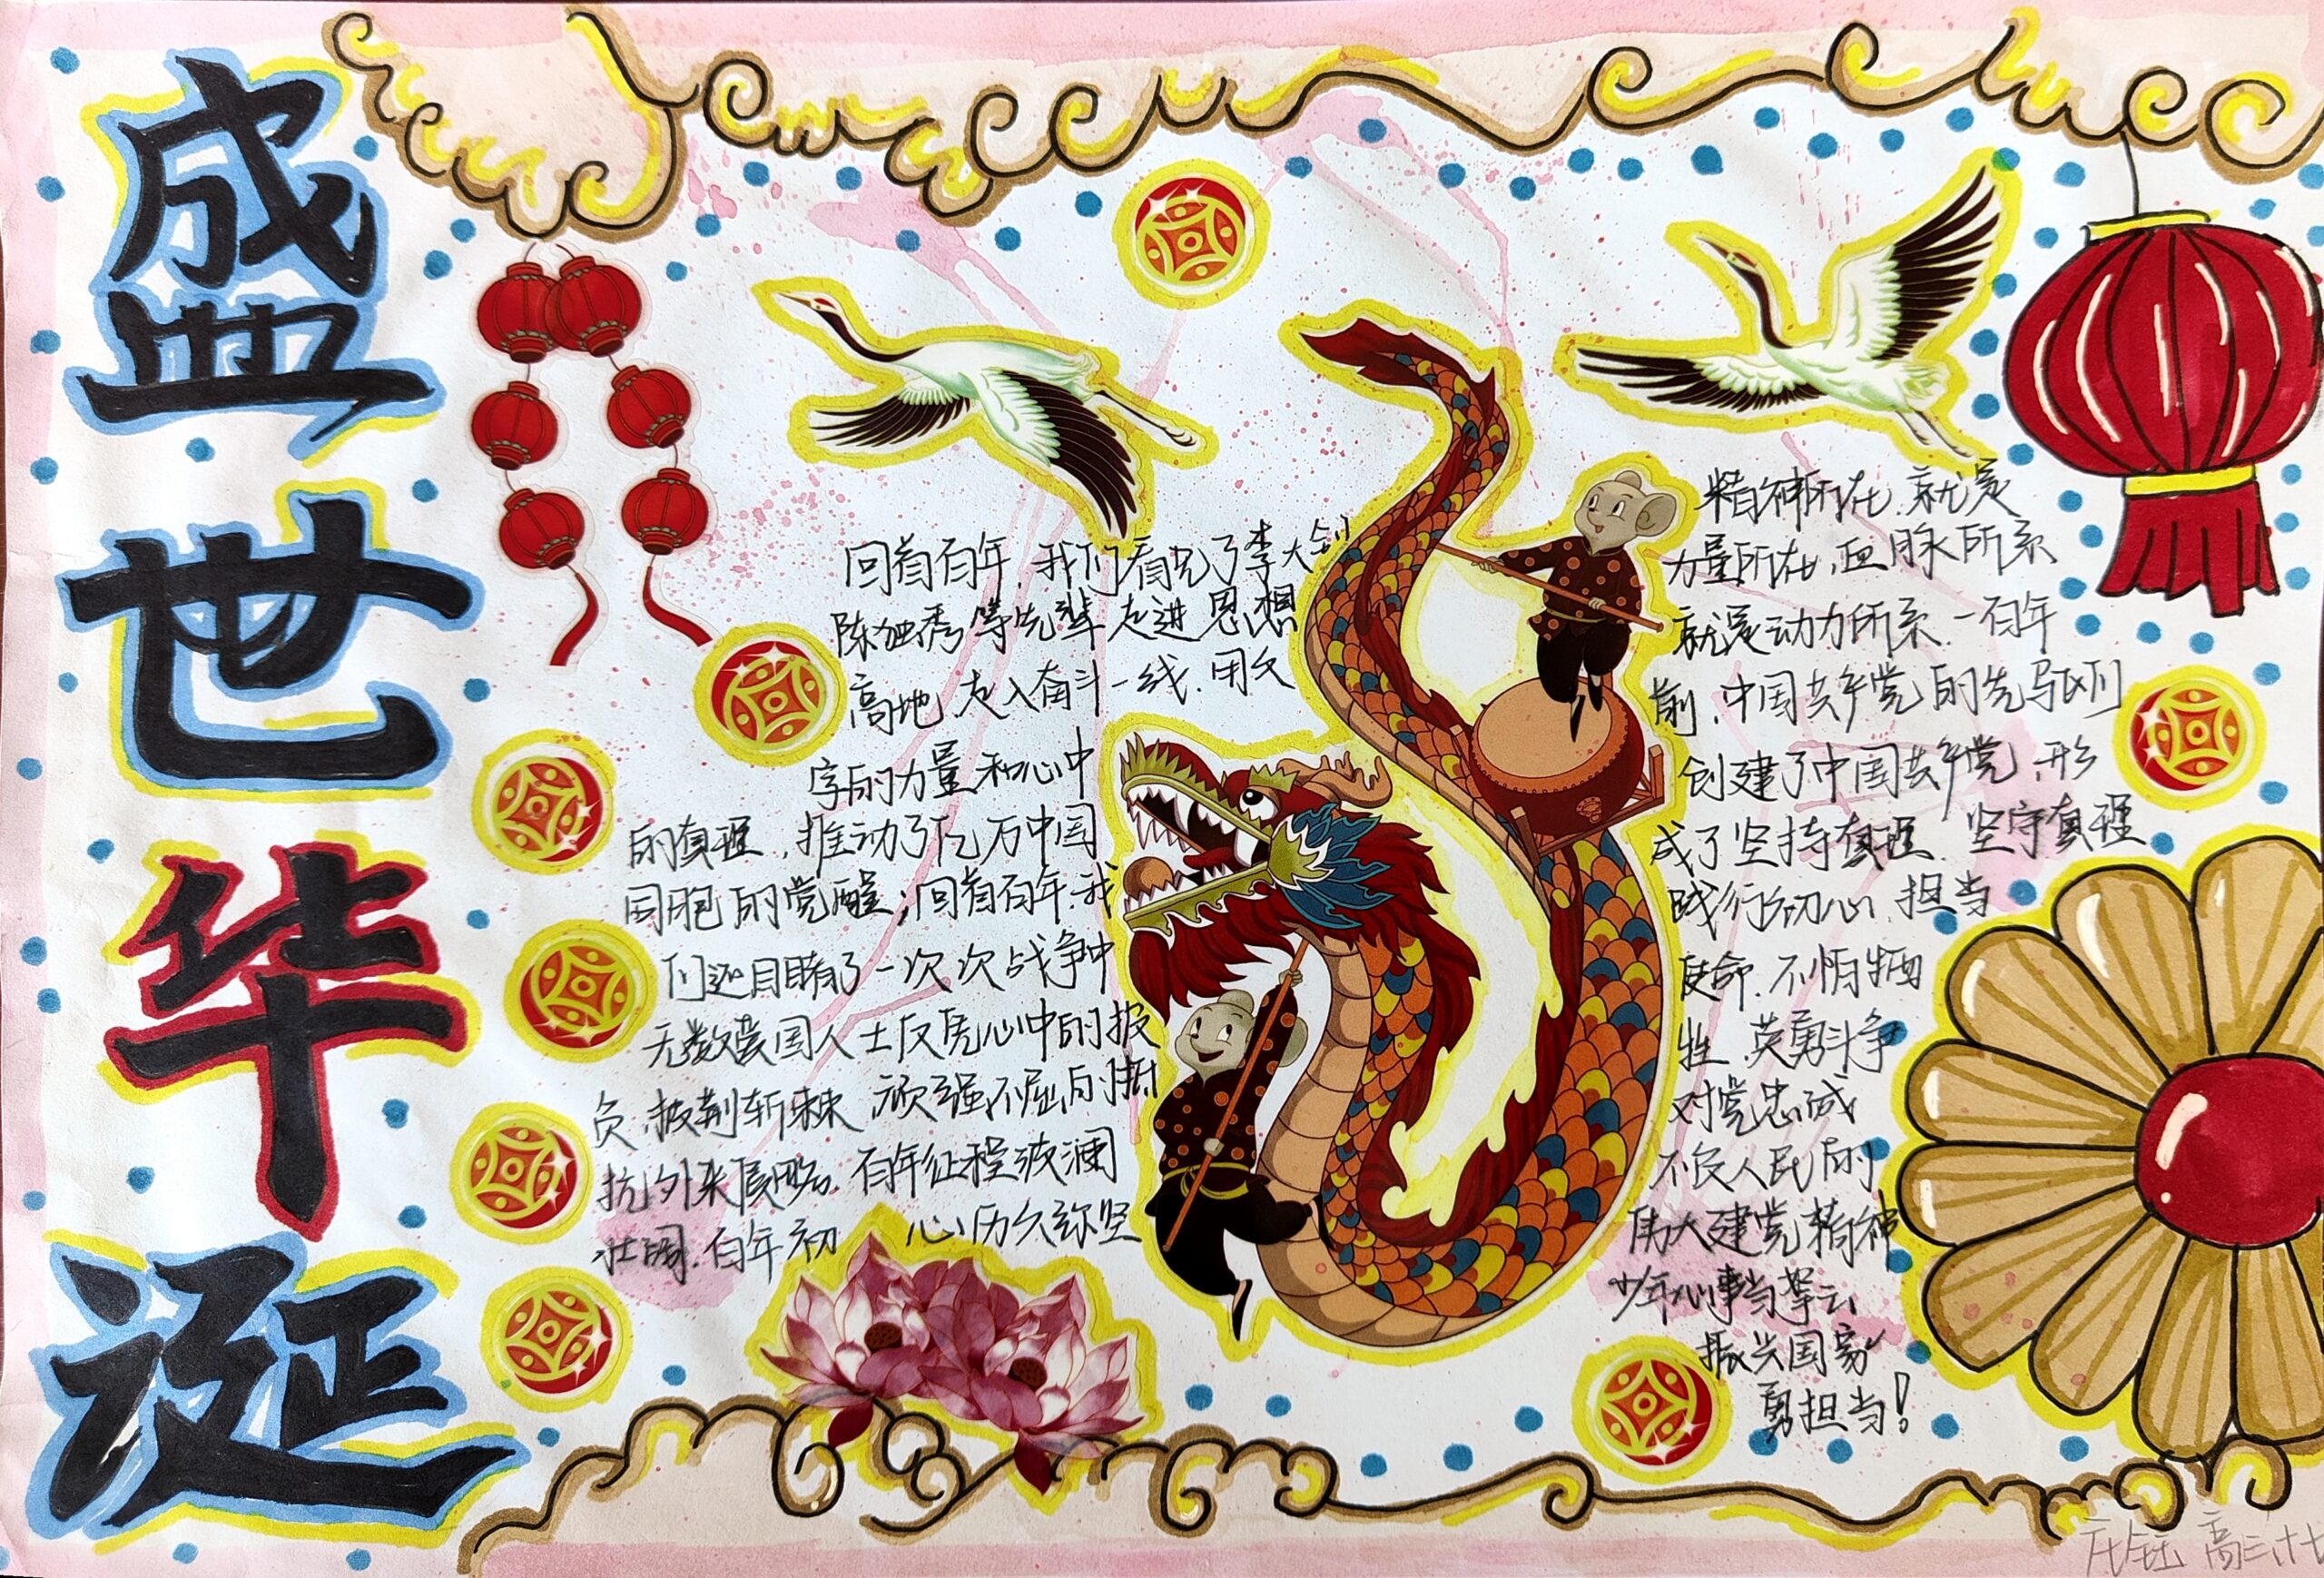 盛世华诞
回首百年，我们看见了李大钊
陈独秀等先辈走进思想
高地，走入奋斗一线，用文
字的力量和心中
的真理，推动了亿万中国
同胞的觉醒；回首百年，我
们还目睹了一次次战争中
无数爱国人士反凭心中的报
负，披荆斩棘 顽强不屈的抵
抗外来侵略。百年征程波澜
壮阔，百年初心历久弥坚
精神所在，就是
力量所在，血脉所系
就是动力所系，一百年
前，中国共产党的先驱们
创建了中国共产党，形
成了坚持真理、坚守真理
践行初心、担当
使命，不怕牺
牲、英勇斗争
对党忠诚
不负人民的
伟大建党精神
少年心事当拏云
振兴国家
勇担当！